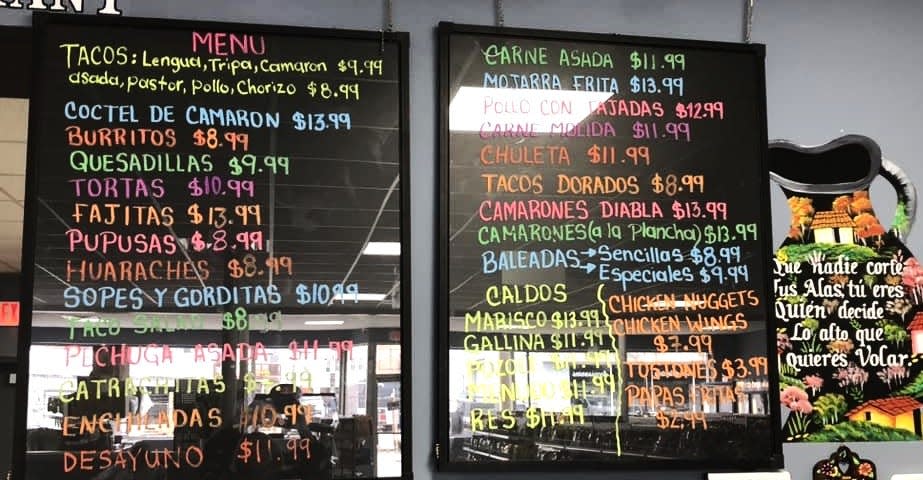 MENU
TACOS: Lengua, Tripa, Camaron $9.99
asada, pastor, Pollo, Chorizo $8.99
COCTEL DE CAMARON $13.99
BURRITOS $8.99
QUESADILLAS $9.99
TORTAS $10.99
FAJITAS $13.99
PUPUSAS $8.99
HUARACHES $8.99
SOPES Y GORDITAS $10.99
TACO SALAD $8.99
PECHUGA ASADA $11.99
CATRACHITAS
ENCHILADAS $10.99
DESAYUNO $11.99
CARNE ASADA $11.99
MOJARRA FRITA $13.99
POLLO CON TAJADAS $12.99
CARNE MOLIDA $11.99
CHULETA $11.99
TACOS DORADOS $8.99
CAMARONES DIABLA $13.99
CAMARONES (a la Plancha) $13.99
BALEADAS → Sencillas $8.99
→ Especiales $9.99
CALDOS
MARISCO $13.99
GALLINA $11.99
POZOLE $11.99
MENUDO $11.99
RES $11.99
CHICKEN NUGGETS
CHICKEN WINGS
$7.99
TOSTONES $3.99
PAPAS FRITAS
$2.99
Que nadie corte
Tus Alas, tú eres
Quien decide
Lo alto que
Quieres Volar